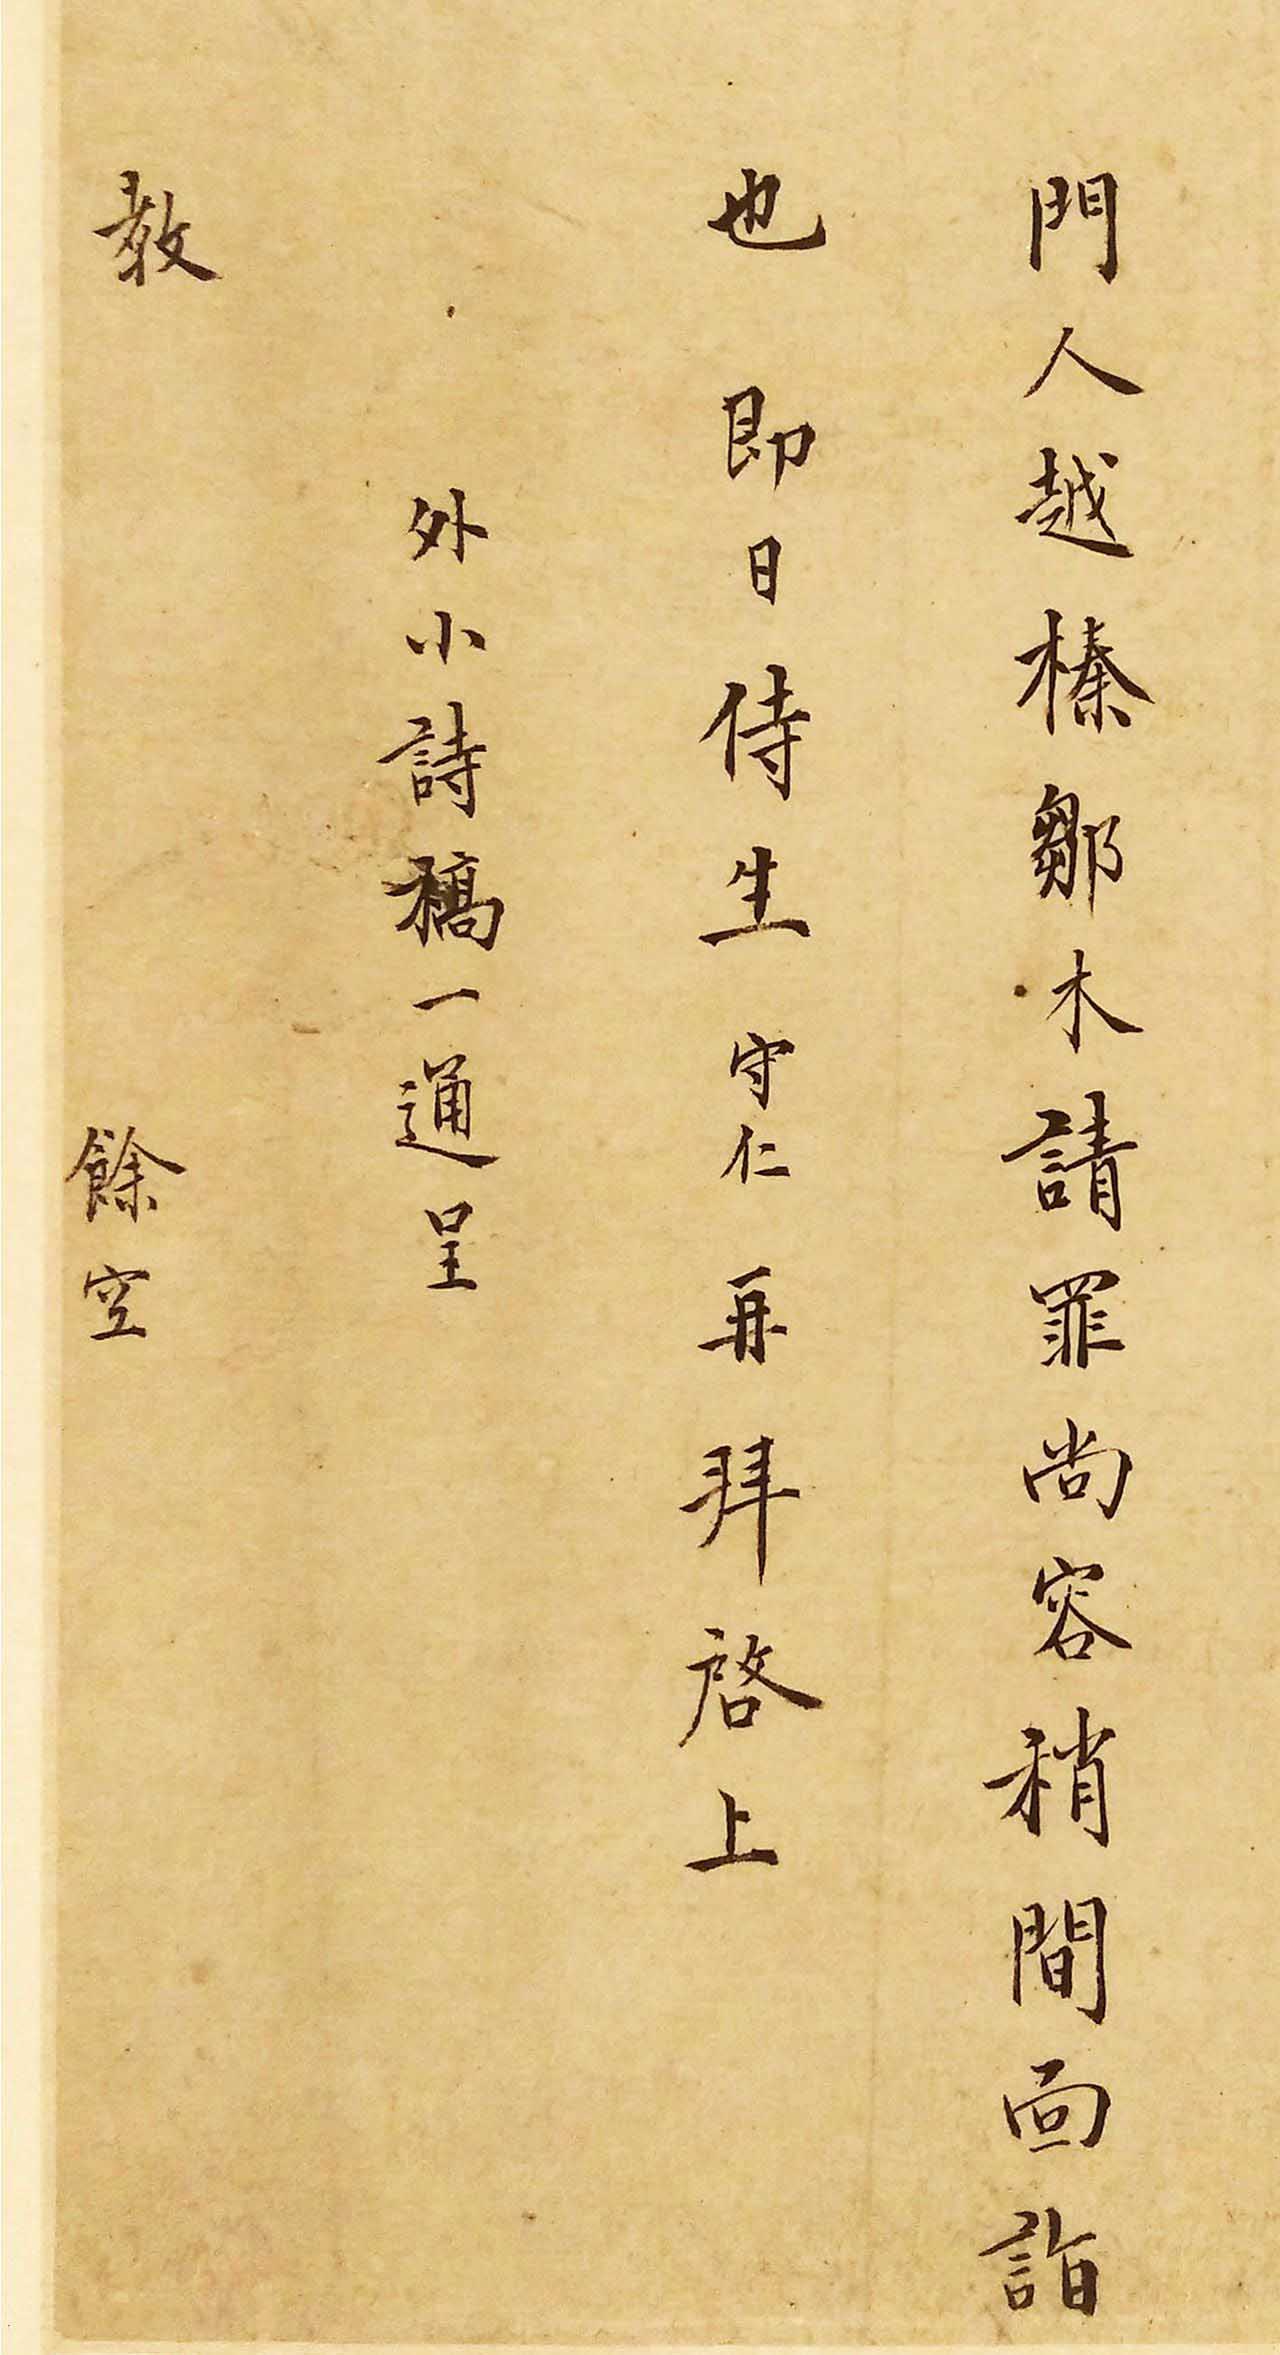 門人越榛鄒木請罪尚容稍間面詣
也 即日侍生守仁再拜啓上
外小詩稿一通呈
教 餘空